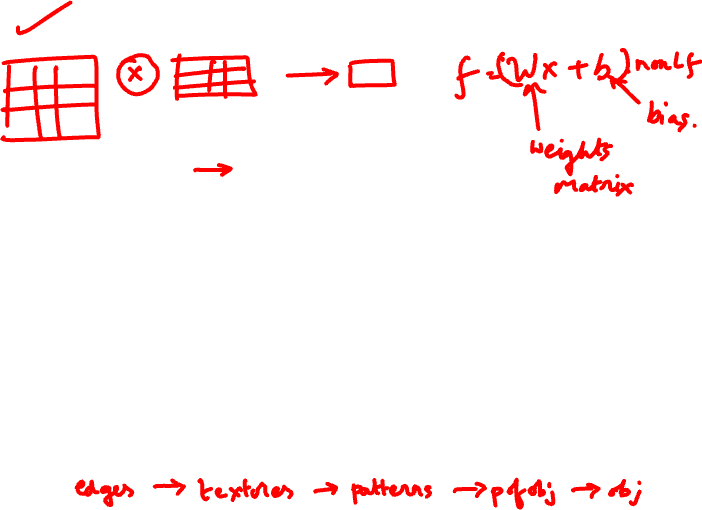 x
f = (Wx + b) nonLf
bias.
weights
matrix
edges → textores → patterns → pofobj → obj